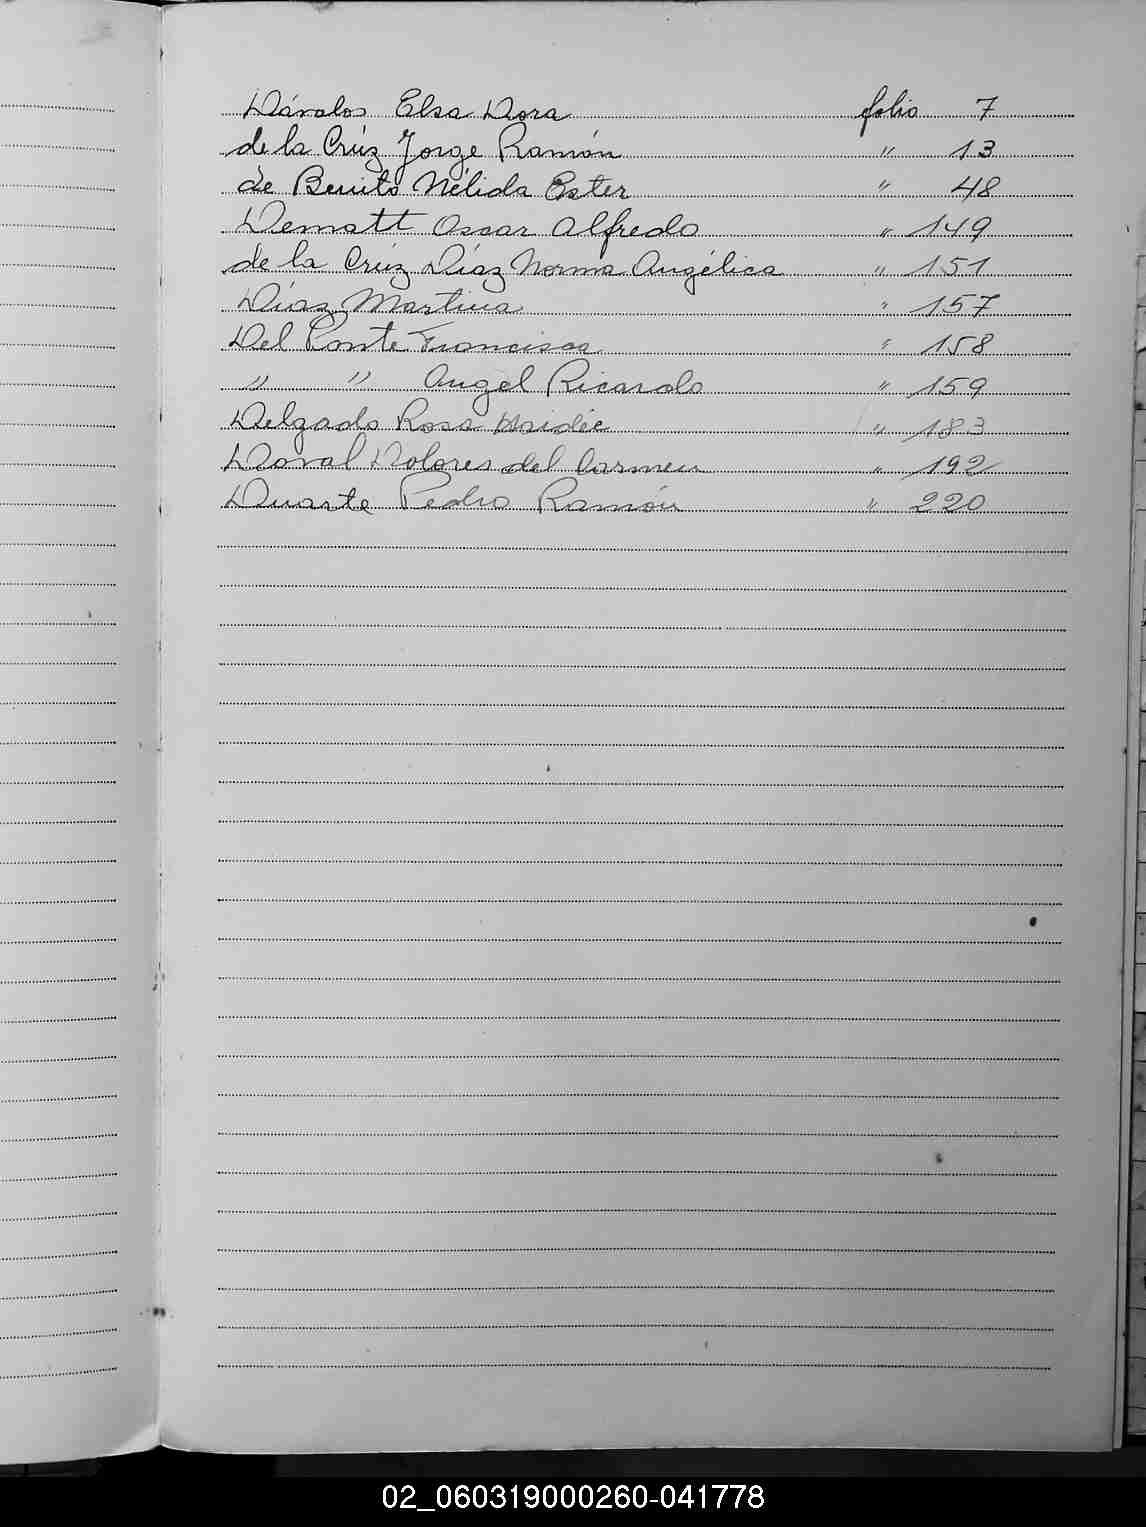 Dávalos Elsa Dora folio 7
de la Crúz Jorge Ramón " 13
de Benito Nélida Ester " 48
Dematt Oscar Alfredo " 149
de la Crúz Díaz Norma Angélica " 151
Díaz Martina " 157
Del Ponte Francisca " 158
" " Angel Ricardo " 159
Delgado Rosa Haidée " 183
Doval Dolores del Carmen " 192
Duarte Pedro Ramón " 220
02_060319000260-041778